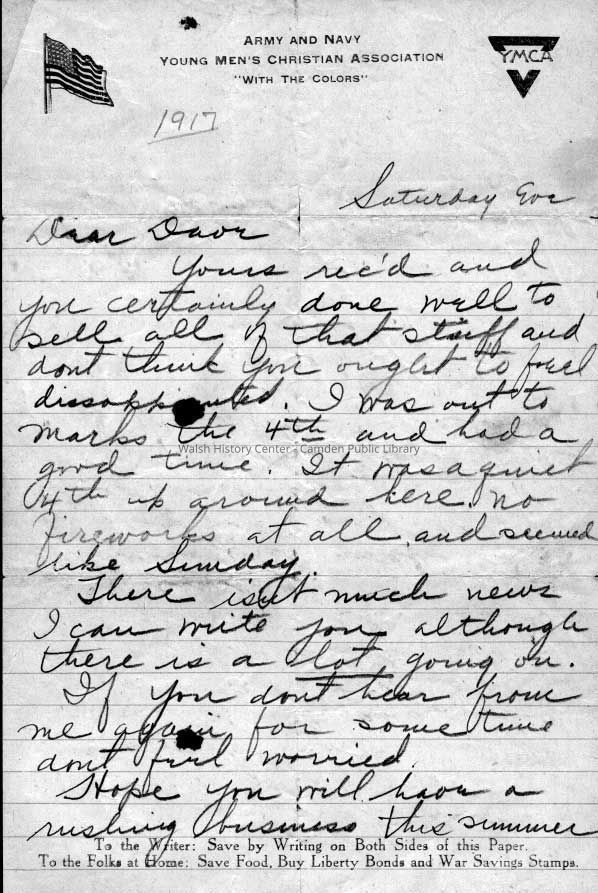 ARMY AND NAVY
YOUNG MEN'S CHRISTIAN ASSOCIATION
"WITH THE COLORS"
YMCA
1917
Saturday Eve
Dear Dave
Yours rec'd and
you certainly done well to
sell all of that stuff and
dont think you ought to feel
disappointed. I was out to
Marks the 4th and had a
good time. It was a quiet
4th up around here no
fireworks at all, and seemed
like Sunday.
There isn't much news
I can write you although
there is a lot going on.
If you don't hear from
me again for some time
dont feel worried.
Hope you will have a
rushing business this summer
Walsh History Center - Camden Public Library
To the Writer: Save by Writing on Both Sides of this Paper.
To the Folks at Home: Save Food, Buy Liberty Bonds and War Savings Stamps.